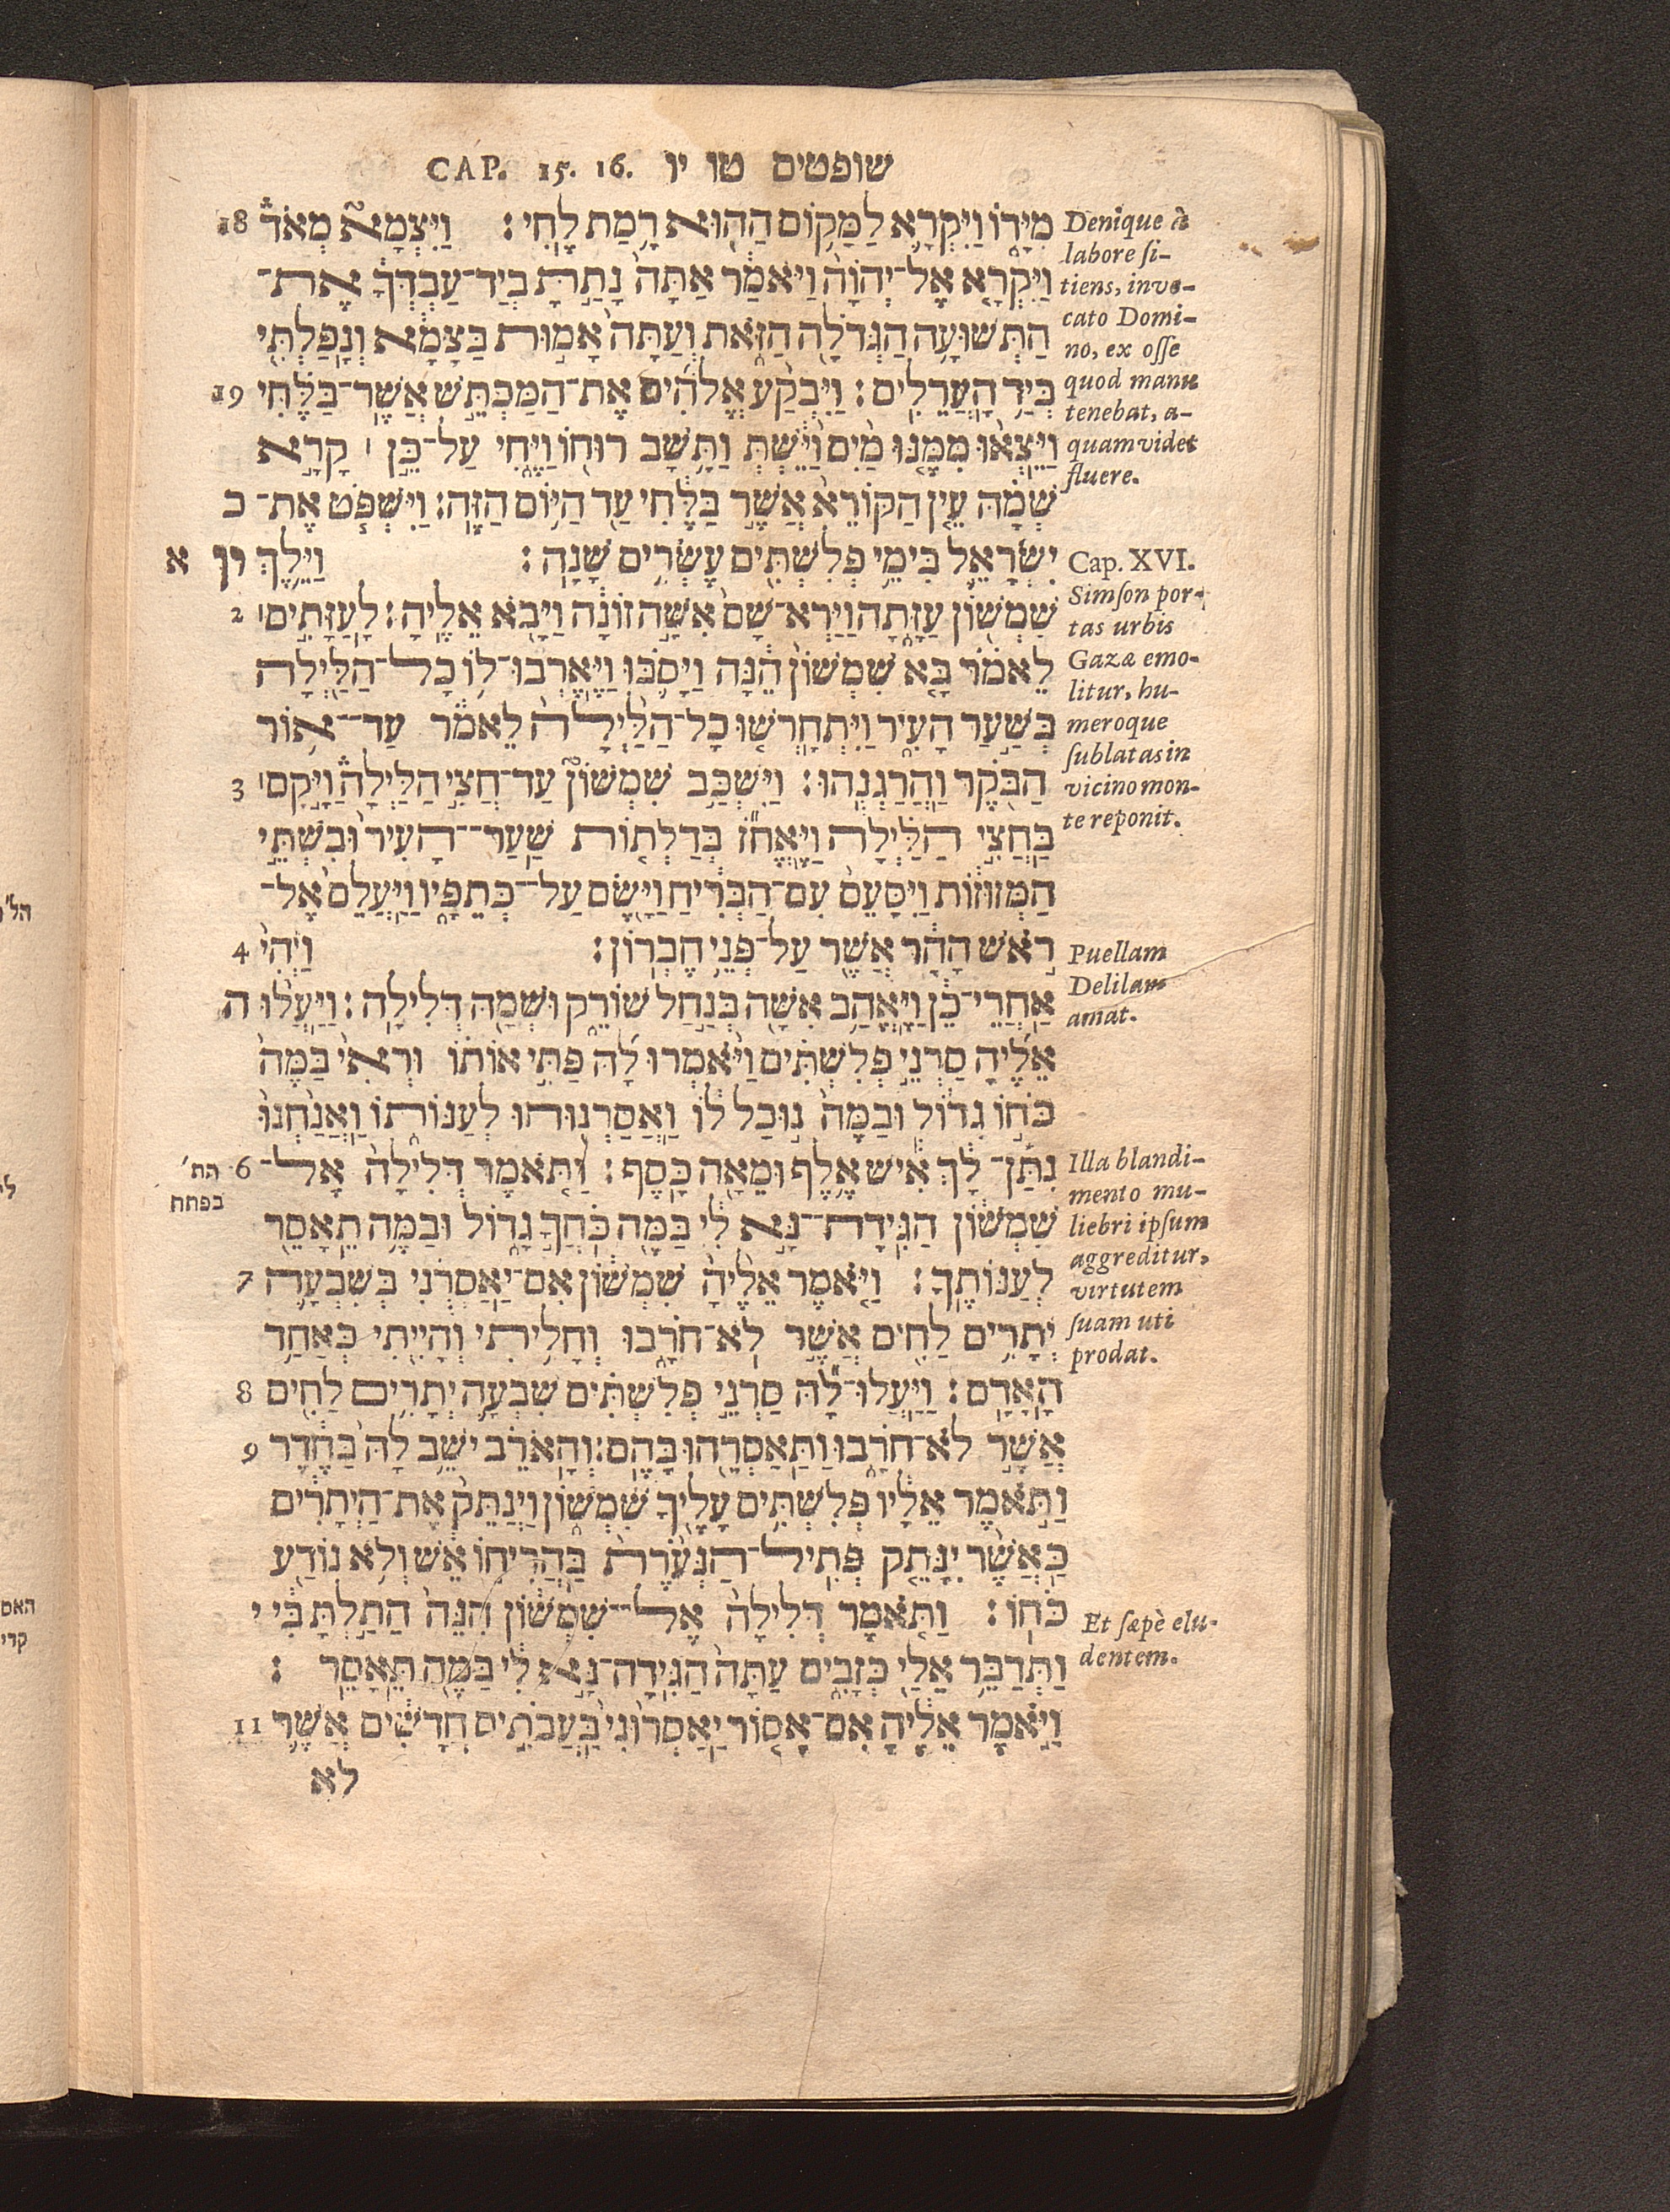 CAP. 15. 16. שופטים טו יו
מִיָּד֑וֹ וַיִּקְרָ֛א לַמָּק֥וֹם הַה֖וּא רָ֥מַת לֶֽחִי׃ וַיִּצְמָא֮ מְאֹד֒ 18
וַיִּקְרָ֤א אֶל־יְהוָה֙ וַיֹּאמַ֔ר אַתָּה֙ נָתַ֣תָּ בְיַד־עַבְדְּךָ֔ אֶת־
הַתְּשׁוּעָ֥ה הַגְּדֹלָ֖ה הַזֹּ֑את וְעַתָּה֙ אָמ֣וּת בַּצָּמָ֔א וְנָפַלְתִּ֖י
בְּיַ֥ד הָעֲרֵלִֽים׃ וַיִּבְקַ֨ע אֱלֹהִ֜ים אֶת־הַמַּכְתֵּ֣שׁ אֲשֶׁר־בַּלֶּ֗חִי 19
וַיֵּצְא֨וּ מִמֶּ֤נּוּ מַ֙יִם֙ וַיֵּ֔שְׁתְּ וַתָּ֥שָׁב רוּח֖וֹ וַיֶּ֑חִי עַל־כֵּ֣ן ׀ קָרָ֣א
שְׁמָ֗הּ עֵ֤ין הַקּוֹרֵא֙ אֲשֶׁ֣ר בַּלֶּ֔חִי עַ֖ד הַיּ֥וֹם הַזֶּֽה׃ וַיִּשְׁפֹּ֧ט אֶת־ כ
יִשְׂרָאֵ֛ל בִּימֵ֥י פְלִשְׁתִּ֖ים עֶשְׂרִ֥ים שָׁנָֽה׃ וַיֵּ֥לֶךְ יו א
שִׁמְשׁ֖וֹן עַזָּ֑תָה וַיַּרְא־שָׁם֙ אִשָּׁ֣ה זוֹנָ֔ה וַיָּבֹ֖א אֵלֶֽיהָ׃ לַֽעַזָּתִ֣ים׀ 2
לֵאמֹ֗ר בָּ֤א שִׁמְשׁוֹן֙ הֵ֔נָּה וַיָּסֹ֛בּוּ וַיֶּאֶרְבוּ־ל֥וֹ כָל־הַלַּ֖יְלָה
בְּשַׁ֣עַר הָעִ֑יר וַיִּתְחָרְשׁ֤וּ כָל־הַלַּ֙יְלָה֙ לֵאמֹ֔ר עַד־א֥וֹר
הַבֹּ֖קֶר וַהֲרַגְנֻֽהוּ׃ וַיִּשְׁכַּ֣ב שִׁמְשׁוֹן֮ עַד־חֲצִ֣י הַלַּיְלָה֒ וַיָּ֣קָם׀ 3
בַּחֲצִ֣י הַלַּ֗יְלָה וַיֶּאֱחֹ֞ז בְּדַלְת֤וֹת שַֽׁעַר־הָעִיר֙ וּבִשְׁתֵּ֣י
הַמְּזוּז֔וֹת וַיִּסָּעֵם֙ עִֽם־הַבְּרִ֔יחַ וַיָּ֖שֶׂם עַל־כְּתֵפָ֑יו וַֽיַּעֲלֵם֙ אֶל־
רֹ֣אשׁ הָהָ֔ר אֲשֶׁ֖ר עַל־פְּנֵ֥י חֶבְרֽוֹן׃ וַיְהִי֙ 4
אַחֲרֵי־כֵ֔ן וַיֶּאֱהַ֥ב אִשָּׁ֖ה בְּנַ֣חַל שׂוֹרֵ֑ק וּשְׁמָ֖הּ דְּלִילָֽה׃ וַיַּעֲל֨וּ ה
אֵלֶ֜יהָ סַרְנֵ֣י פְלִשְׁתִּ֗ים וַיֹּ֨אמְרוּ לָ֜הּ פַּתִּ֣י אוֹת֗וֹ וּרְאִי֙ בַּמֶּה֙
כֹּח֣וֹ גָד֔וֹל וּבַמֶּה֙ נ֣וּכַל ל֔וֹ וַאֲסַרְנ֖וּהוּ לְעַנּוֹת֑וֹ וַאֲנַ֙חְנוּ֙
נִתַּן־לָ֔ךְ אִ֕ישׁ אֶ֥לֶף וּמֵאָ֖ה כָּֽסֶף׃ וַתֹּ֤אמֶר דְּלִילָה֙ אֶל־ 6 הת׳
בפתח
שִׁמְשׁ֔וֹן הַגִּֽידָה־נָּ֣א לִ֔י בַּמֶּ֖ה כֹּחֲךָ֣ גָד֑וֹל וּבַמֶּ֥ה תֵאָסֵ֖ר
לְעַנּוֹתֶֽךָ׃ וַיֹּ֤אמֶר אֵלֶ֙יהָ֙ שִׁמְשׁ֔וֹן אִם־יַאַסְרֻ֗נִי בְּשִׁבְעָ֛ה 7
יְתָרִ֥ים לַחִ֖ים אֲשֶׁ֣ר לֹא־חֹרָ֑בוּ וְחָלִ֥יתִי וְהָיִ֖יתִי כְּאַחַ֥ד
הָאָדָֽם׃ וַיַּעֲלוּ־לָ֞הּ סַרְנֵ֣י פְלִשְׁתִּ֗ים שִׁבְעָ֛ה יְתָרִ֥ים לַחִ֖ים 8
אֲשֶׁ֣ר לֹא־חֹרָ֑בוּ וַתַּאַסְרֵ֖הוּ בָּהֶֽם׃ וְהָאֹרֵ֗ב יֹשֵׁ֥ב לָהּ֙ בַּחֶ֔דֶר 9
וַתֹּ֣אמֶר אֵלָ֔יו פְּלִשְׁתִּ֥ים עָלֶ֖יךָ שִׁמְשׁ֑וֹן וַיְנַתֵּק֙ אֶת־הַיְתָרִ֔ים
כַּאֲשֶׁ֨ר יִנָּתֵ֤ק פְּתִֽיל־הַנְּעֹ֙רֶת֙ בַּהֲרִיח֣וֹ אֵ֔שׁ וְלֹ֥א נוֹדַ֖ע
כֹּחֽוֹ׃ וַתֹּ֤אמֶר דְּלִילָה֙ אֶל־שִׁמְשׁ֔וֹן הִנֵּה֙ הֵתַ֣לְתָּ בִּ֔י י
וַתְּדַבֵּ֥ר אֵלַ֖י כְּזָבִ֑ים עַתָּה֙ הַגִּֽידָה־נָּ֣א לִ֔י בַּמֶּ֖ה תֵּאָסֵֽר׃
וַיֹּ֣אמֶר אֵלֶ֔יהָ אִם־אָס֤וֹר יַאַסְר֙וּנִי֙ בַּעֲבֹתִ֣ים חֲדָשִׁ֔ים אֲשֶׁ֛ר 11
לא
Denique à
labore ſi-
tiens, invo-
cato Domi-
no, ex oſſe
quod manu
tenebat, a-
quam videt
fluere.
Cap. XVI.
Simſon por-
tas urbis
Gazæ emo-
litur, hu-
meroque
ſublatas in
vicino mon-
te reponit.
Puellam
Delilam
amat.
Illa blandi-
mento mu-
liebri ipſum
aggreditur,
virtutem
ſuam uti
prodat.
Et ſæpè elu-
dentem.